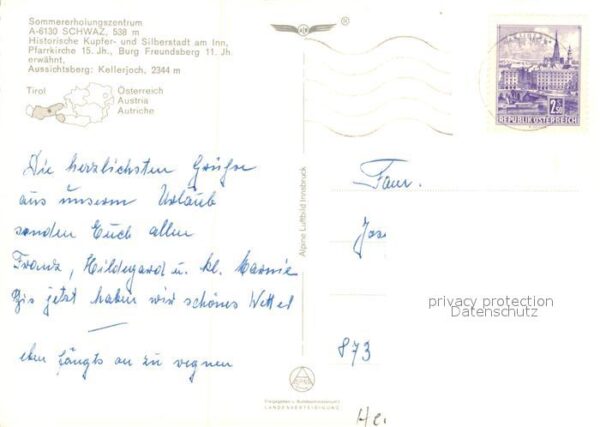 Sommererholungszentrum
A-6130 SCHWAZ, 538 m
Historische Kupfer- und Silberstadt am Inn,
Pfarrkirche 15. Jh., Burg Freundsberg 11. Jh.
erwähnt,
Aussichtsberg: Kellerjoch, 2344 m
Tirol
Österreich
Austria
Autriche
Die herzlichsten Grüße
aus unserem Urlaub
senden Euch allen
Franz, Hildegard u. kl.
Bis jetzt haben wir schönes Wetter
—
eben fängts an zu regnen
Alpine Luftbild Innsbruck
LANDESVERTEIDIGUNG
2.50
REPUBLIK ÖSTERREICH
Fam.
Jos
873
privacy protection
Datenschutz
He.